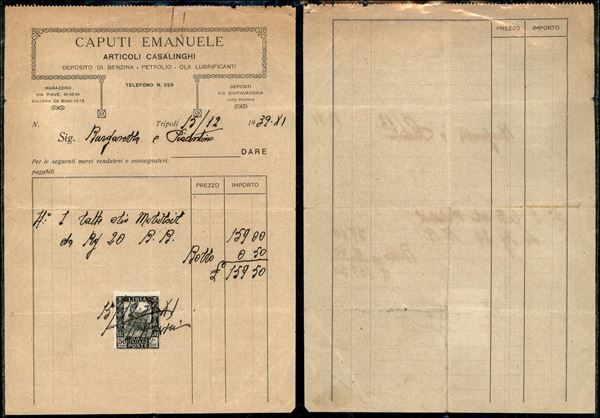 CAPUTI EMANUELE
ARTICOLI CASALINGHI
DEPOSITO DI BENZINA - PETROLIO - OLII LUBRIFICANTI
MAGAZZINO
VIA PIAVE, 40-42-44
GALLERIA DE BONO 16-18
TELEFONO N. 329
DEPOSITI
VIA CIVITAVECCHIA
CASA PROPRIA
N. Tripoli 15/12 1939-XI
Sig. e
DARE
Per le seguenti merci vendutevi e consegnatevi,
pagabili
PREZZO IMPORTO
N° 1 latta olio Mobiloil
da Kg 20 B. B. 159 00
Bollo 0 50
£ 159 50
15/12
LIBIA
POSTE
PREZZO IMPORTO